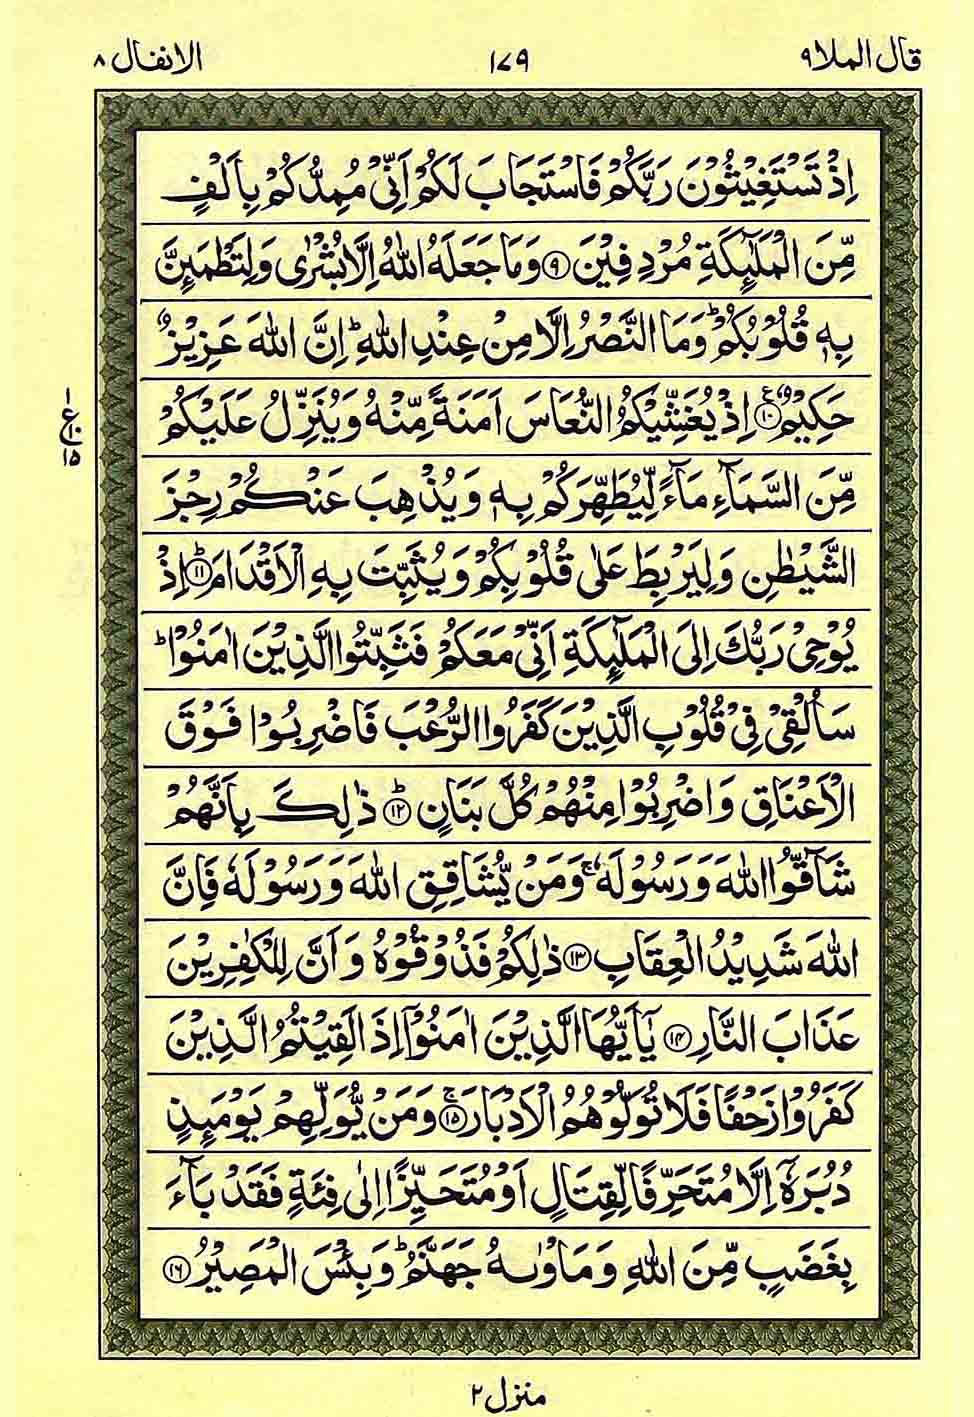 قال الملا ۹
۱۷۹
الانفال ۸
اِذْ تَسْتَغِيْثُوْنَ رَبَّكُمْ فَاسْتَجَابَ لَكُمْ اَنِّىْ مُمِدُّكُمْ بِاَلْفٍ
مِّنَ الْمَلٰٓئِكَةِ مُرْدِفِيْنَ ﴿۹﴾ وَمَا جَعَلَهُ اللّٰهُ اِلَّا بُشْرٰى وَلِتَطْمَئِنَّ
بِهٖ قُلُوْبُكُمْ ؕ وَمَا النَّصْرُ اِلَّا مِنْ عِنْدِ اللّٰهِ ؕ اِنَّ اللّٰهَ عَزِيْزٌ
حَكِيْمٌ ﴿۱۰﴾ۧ اِذْ يُغَشِّيْكُمُ النُّعَاسَ اَمَنَةً مِّنْهُ وَيُنَزِّلُ عَلَيْكُمْ
مِّنَ السَّمَآءِ مَآءً لِّيُطَهِّرَكُمْ بِهٖ وَيُذْهِبَ عَنْكُمْ رِجْزَ
الشَّيْطٰنِ وَلِيَرْبِطَ عَلٰى قُلُوْبِكُمْ وَيُثَبِّتَ بِهِ الْاَقْدَامَ ؕ﴿۱۱﴾ اِذْ
يُوْحِىْ رَبُّكَ اِلَى الْمَلٰٓئِكَةِ اَنِّىْ مَعَكُمْ فَثَبِّتُوا الَّذِيْنَ اٰمَنُوْا ؕ
سَاُلْقِىْ فِىْ قُلُوْبِ الَّذِيْنَ كَفَرُوا الرُّعْبَ فَاضْرِبُوْا فَوْقَ
الْاَعْنَاقِ وَاضْرِبُوْا مِنْهُمْ كُلَّ بَنَانٍ ؕ﴿۱۲﴾ ذٰلِكَ بِاَنَّهُمْ
شَآقُّوا اللّٰهَ وَرَسُوْلَهٗ ۚ وَمَنْ يُّشَاقِقِ اللّٰهَ وَرَسُوْلَهٗ فَاِنَّ
اللّٰهَ شَدِيْدُ الْعِقَابِ ﴿۱۳﴾ ذٰلِكُمْ فَذُوْقُوْهُ وَاَنَّ لِلْكٰفِرِيْنَ
عَذَابَ النَّارِ ﴿۱۴﴾ يٰۤاَيُّهَا الَّذِيْنَ اٰمَنُوْۤا اِذَا لَقِيْتُمُ الَّذِيْنَ
كَفَرُوْا زَحْفًا فَلَا تُوَلُّوْهُمُ الْاَدْبَارَ ۚ﴿۱۵﴾ وَمَنْ يُّوَلِّهِمْ يَوْمَئِذٍ
دُبُرَهٗۤ اِلَّا مُتَحَرِّفًا لِّقِتَالٍ اَوْ مُتَحَيِّزًا اِلٰى فِئَةٍ فَقَدْ بَآءَ
بِغَضَبٍ مِّنَ اللّٰهِ وَمَاْوٰىهُ جَهَنَّمُ ؕ وَبِئْسَ الْمَصِيْرُ ﴿۱۶﴾
منزل ۲